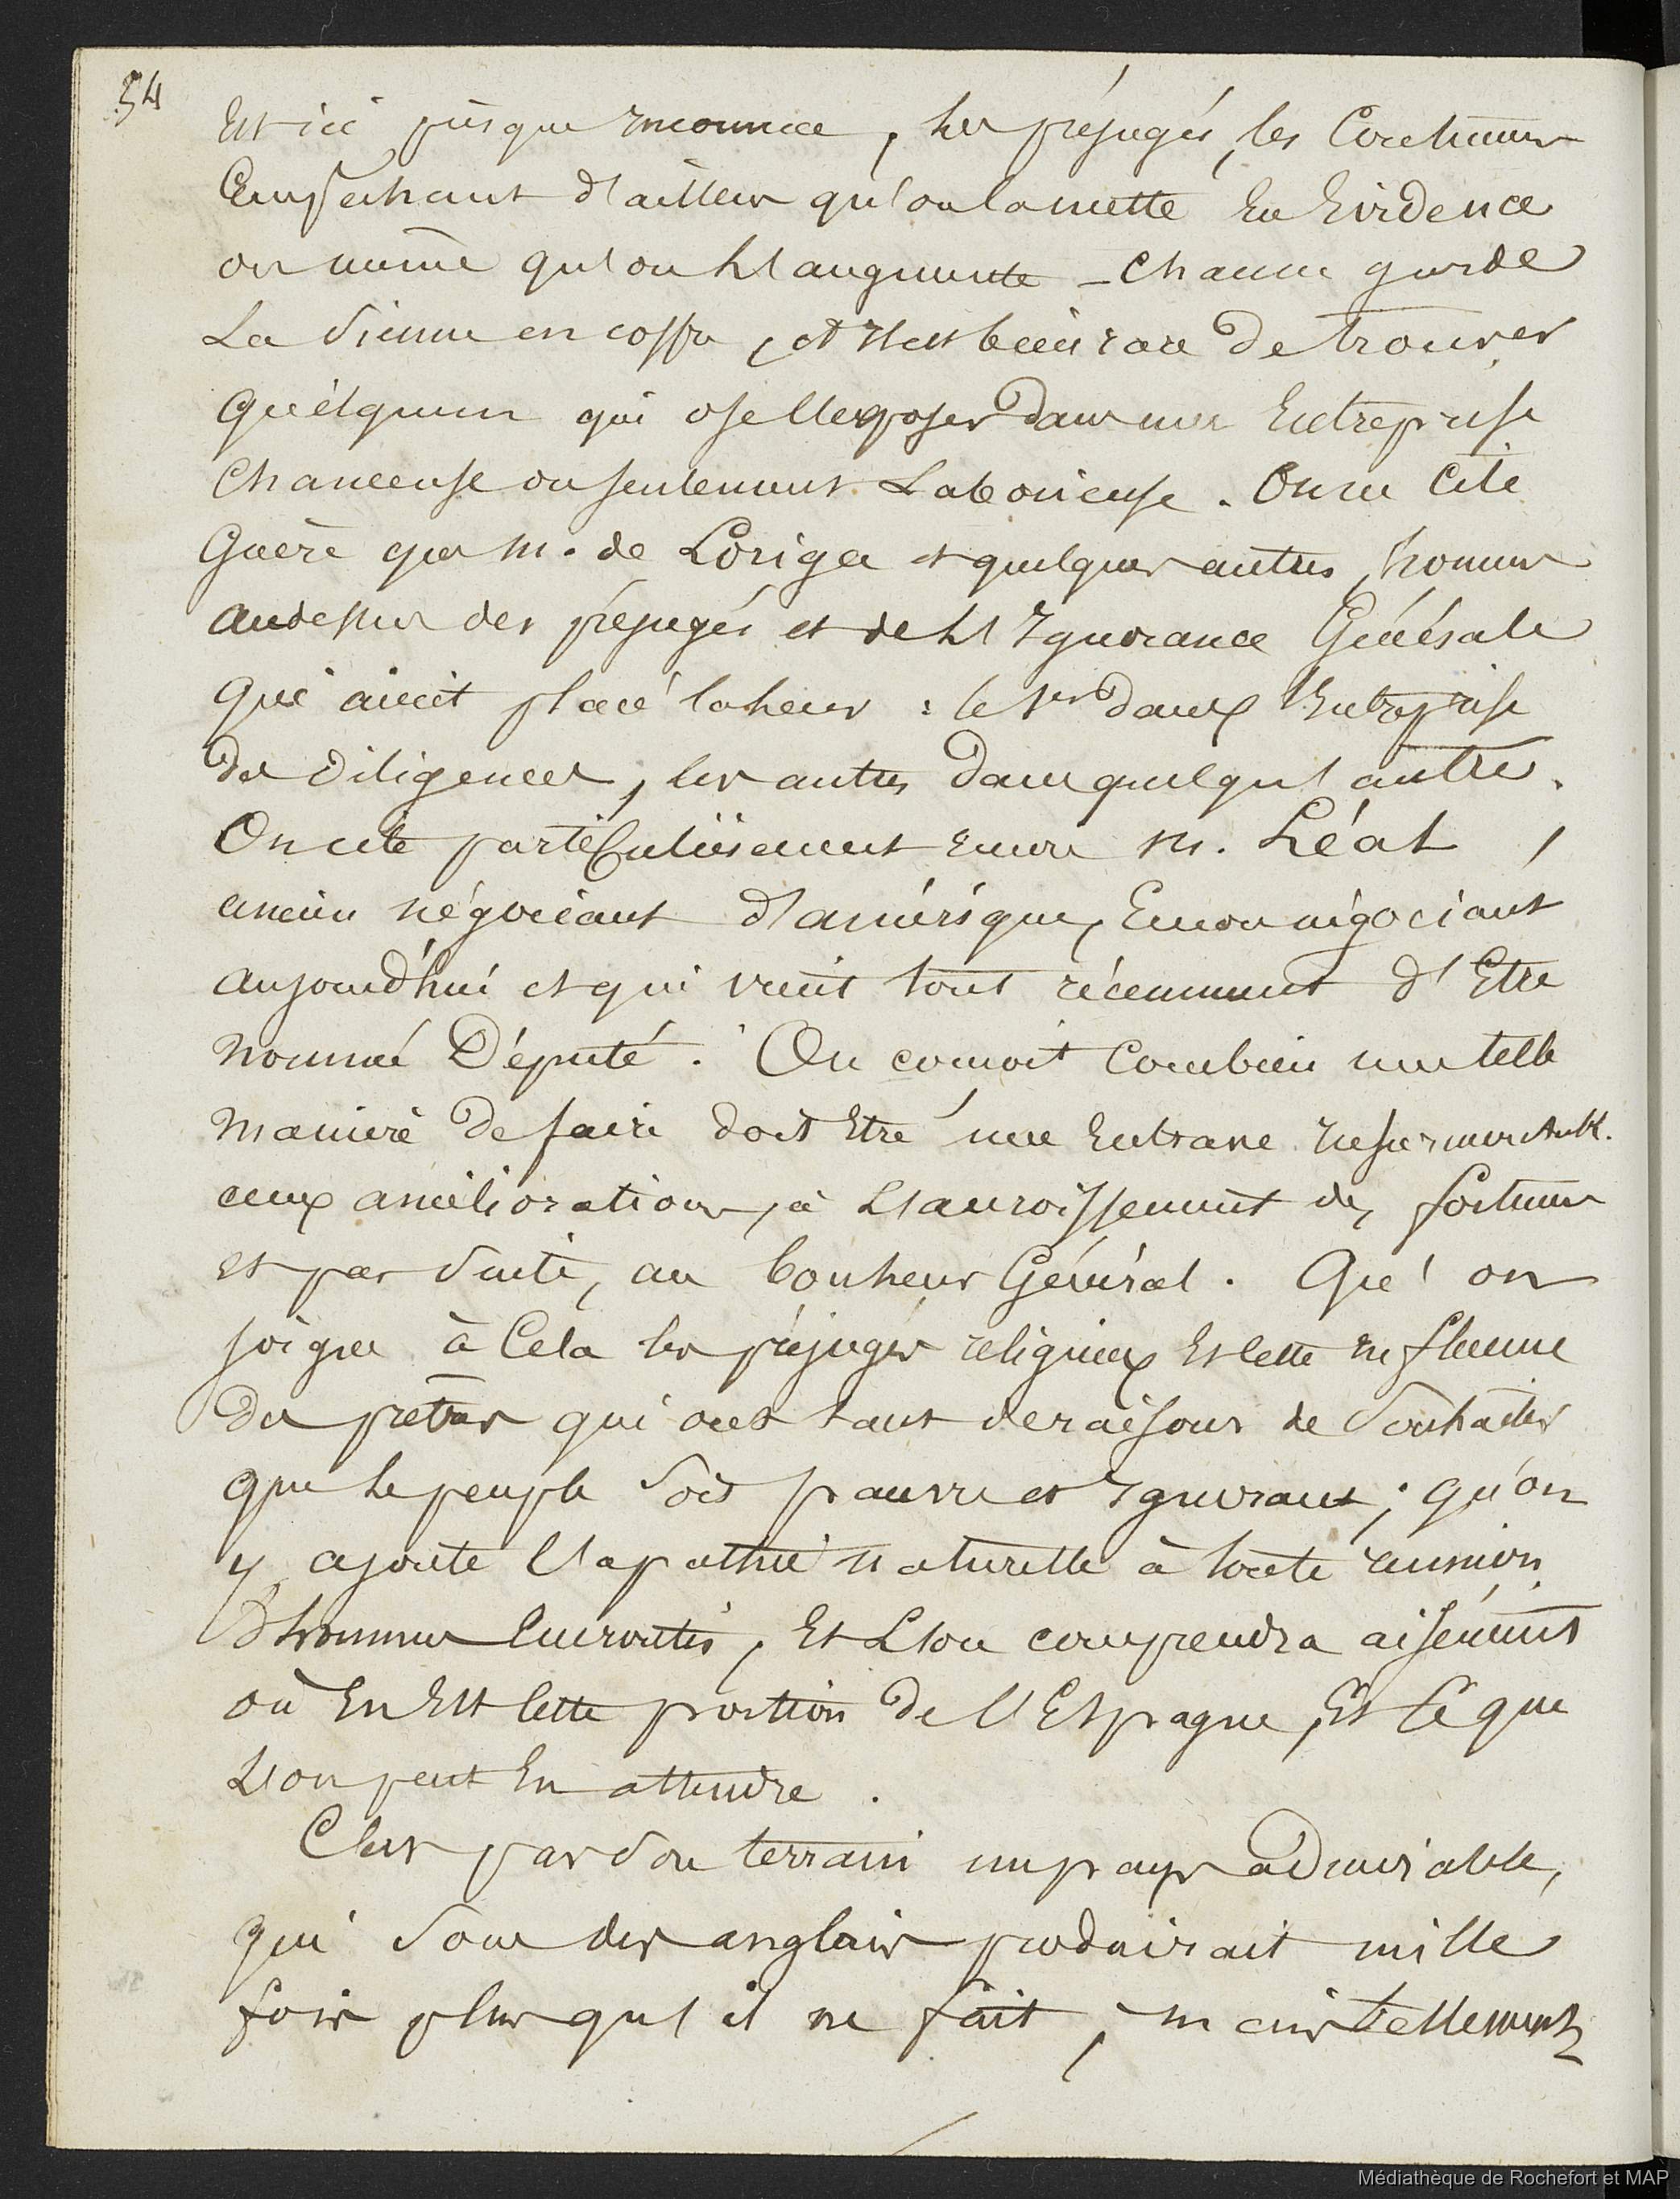 54
Est ici presque inconnue, les préjugés, les Coutumes
Empechant d'ailleurs qu'on la mette En Evidence
ou même qu'on l'augmente – Chacun garde
La Sienne en coffre, et Il est bien rare de trouver
quelqu'un qui ose l'exposer dans une Entreprise
Chanceuse ou seulement Laborieuse. On ne Cite
Guère que M. de Loriga et quelques autres, hommes
audessus des préjugés et de l'Ignorance Générale
qui aient placé la leur : le 1er dans l'Entreprise
des Diligences, les autres dans quelqu'autre.
On cite particulièrement encore M. Léal,
ancien négociant d'amérique, Encore négociant
aujourd'hui et qui vient tout récemment d'Etre
nommé Député. On connoit Combien une telle
manière de faire doit Etre une Entrave
aux améliorations, à L'accroissement des fortunes
et par Suite, au bonheur Général. Qu'on
joigne à Cela les préjugés religieux Et cette influence
des prêtres qui ont tant de raisons de Souhaiter
que le peuple Soit pauvre et Ignorant ; qu'on
y ajoute l'apathie naturelle à toute réunion
d'hommes Encroutés, Et L'on comprendra aisément
où En Est cette portion de l'Espagne, Et Ce que
L'on peut En attendre.
C'est par Son terrain un pays admirable,
qui Sous des anglais produirait mille
fois plus qu'il ne fait, mais tellement
Médiathèque de Rochefort et MAP